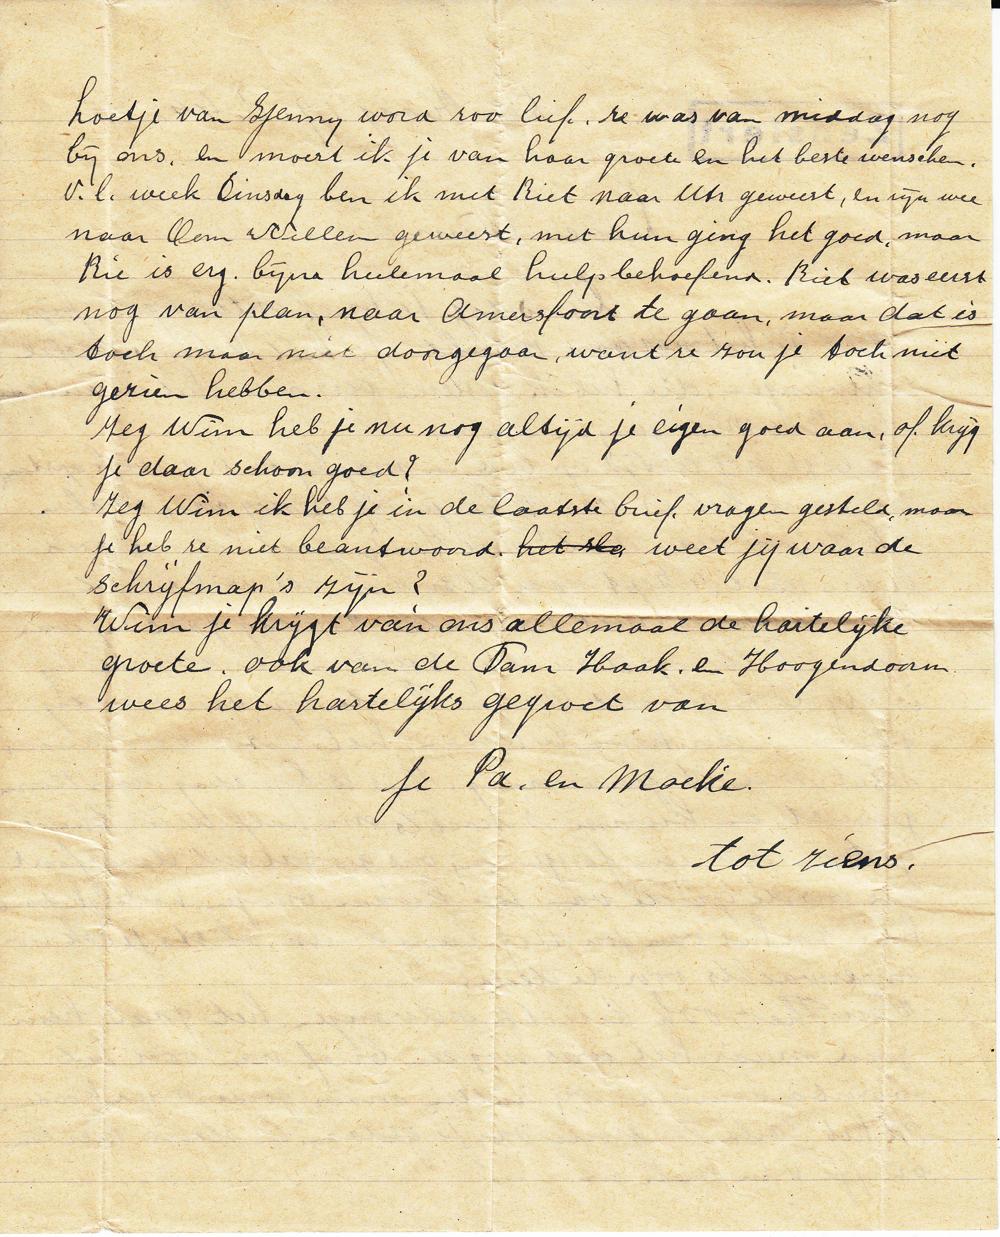 hoetje van Gjenny word zoo lief. ze was van middag nog
bij ons. en moest ik je van haar groete en het beste wenschen.
V.l. week Dinsdag ben ik met Riet naar Utr geweest, en zijn wee
naar Oom Willem geweest, met hun ging het goed, maar
Rie is erg. bijna heelemaal hulpbehoefend. Riet was eerst
nog van plan, naar Amersfoort te gaan, maar dat is
toch maar niet doorgegaan, want ze zou je toch niet
gezien hebben.
Zeg Wim heb je nu nog altijd je eigen goed aan, of krijg
je daar schoon goed?
Zeg Wim ik heb je in de laatste brief. vragen gesteld, maar
je heb ze niet beantwoord. weet jij waar de
schrijfmap's zijn?
Wim je krijgt van ons allemaal de hartelijke
groete. ook van de Fam Haak. en Hoogendoorn
wees het hartelijks gegroet van
Je Pa. en Moeke.
tot ziens.